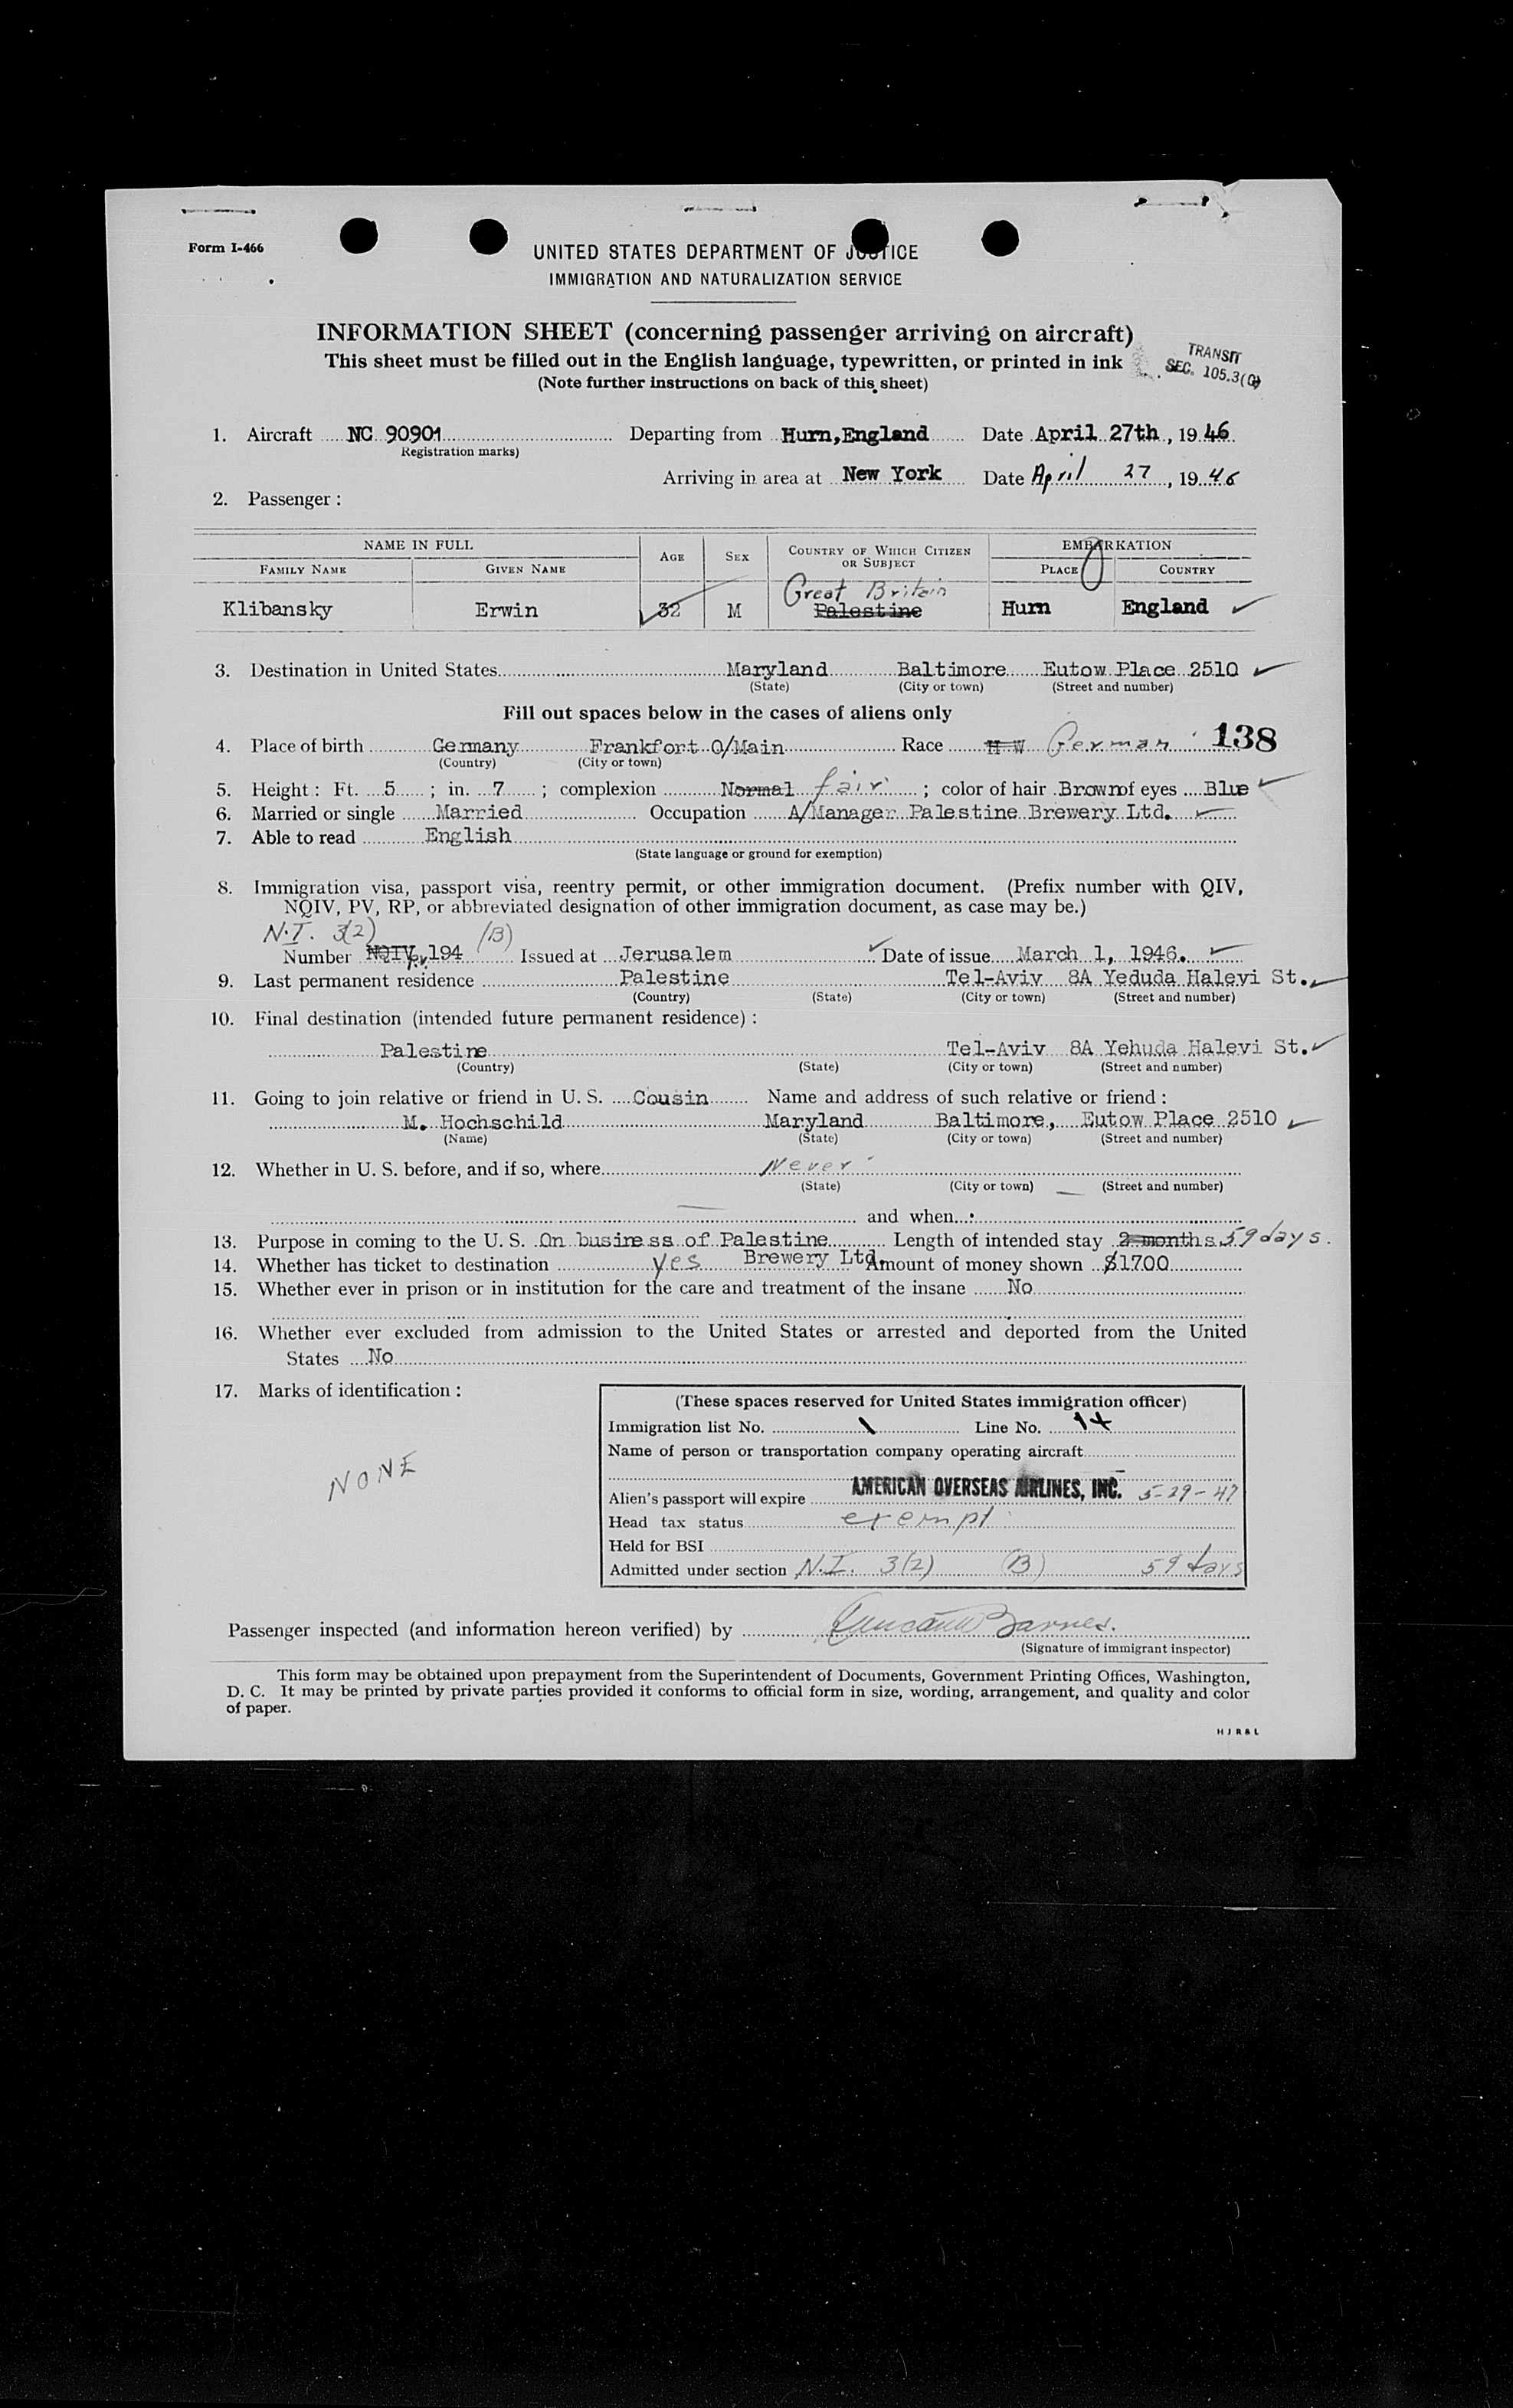 Form I-466
UNITED STATES DEPARTMENT OF JUSTICE
IMMIGRATION AND NATURALIZATION SERVICE
INFORMATION SHEET (concerning passenger arriving on aircraft)
This sheet must be filled out in the English language, typewritten, or printed in ink
(Note further instructions on back of this sheet)
TRANSIT
SEC. 105.3(C)
1. Aircraft NC 90901 Departing from Hurn, England Date April 27th, 1946
Registration marks)
Arriving in area at New York Date April 27, 1946
2. Passenger :
NAME IN FULL AGE SEX COUNTRY OF WHICH CITIZEN OR SUBJECT EMBARKATION
FAMILY NAME GIVEN NAME PLACE COUNTRY
Great Britain
Klibansky Erwin 32 M Palestine Hurn England
3. Destination in United States Maryland Baltimore Eutow Place 2510
(State) (City or town) (Street and number)
Fill out spaces below in the cases of aliens only
4. Place of birth Germany Frankfort O/Main Race H W German 138
(Country) (City or town)
5. Height : Ft. 5 ; in. 7 ; complexion Normal fair ; color of hair Brown of eyes Blue
6. Married or single Married Occupation A/Manager Palestine Brewery Ltd.
7. Able to read English
(State language or ground for exemption)
8. Immigration visa, passport visa, reentry permit, or other immigration document. (Prefix number with QIV,
NQIV, PV, RP, or abbreviated designation of other immigration document, as case may be.)
N.I. 3(2) (B)
Number NQIV P.V. 194 Issued at Jerusalem Date of issue March 1, 1946.
9. Last permanent residence Palestine Tel-Aviv 8A Yeduda Halevi St.
(Country) (State) (City or town) (Street and number)
10. Final destination (intended future permanent residence) :
Palestine Tel-Aviv 8A Yehuda Halevi St.
(Country) (State) (City or town) (Street and number)
11. Going to join relative or friend in U. S. Cousin Name and address of such relative or friend :
M. Hochschild Maryland Baltimore, Eutow Place 2510
(Name) (State) (City or town) (Street and number)
12. Whether in U. S. before, and if so, where Never
(State) (City or town) (Street and number)
and when
13. Purpose in coming to the U. S. On business of Palestine Length of intended stay 2 months 59 days.
14. Whether has ticket to destination yes Brewery Ltd. Amount of money shown $1700
15. Whether ever in prison or in institution for the care and treatment of the insane No
16. Whether ever excluded from admission to the United States or arrested and deported from the United
States No
17. Marks of identification :
NONE
(These spaces reserved for United States immigration officer)
Immigration list No. 1 Line No. 14
Name of person or transportation company operating aircraft
AMERICAN OVERSEAS AIRLINES, INC.
Alien's passport will expire 5-29-47
Head tax status exempt
Held for BSI
Admitted under section N.I. 3(2) (B) 59 days
Passenger inspected (and information hereon verified) by Barnes.
(Signature of immigrant inspector)
This form may be obtained upon prepayment from the Superintendent of Documents, Government Printing Offices, Washington,
D. C. It may be printed by private parties provided it conforms to official form in size, wording, arrangement, and quality and color
of paper.
H J R & L